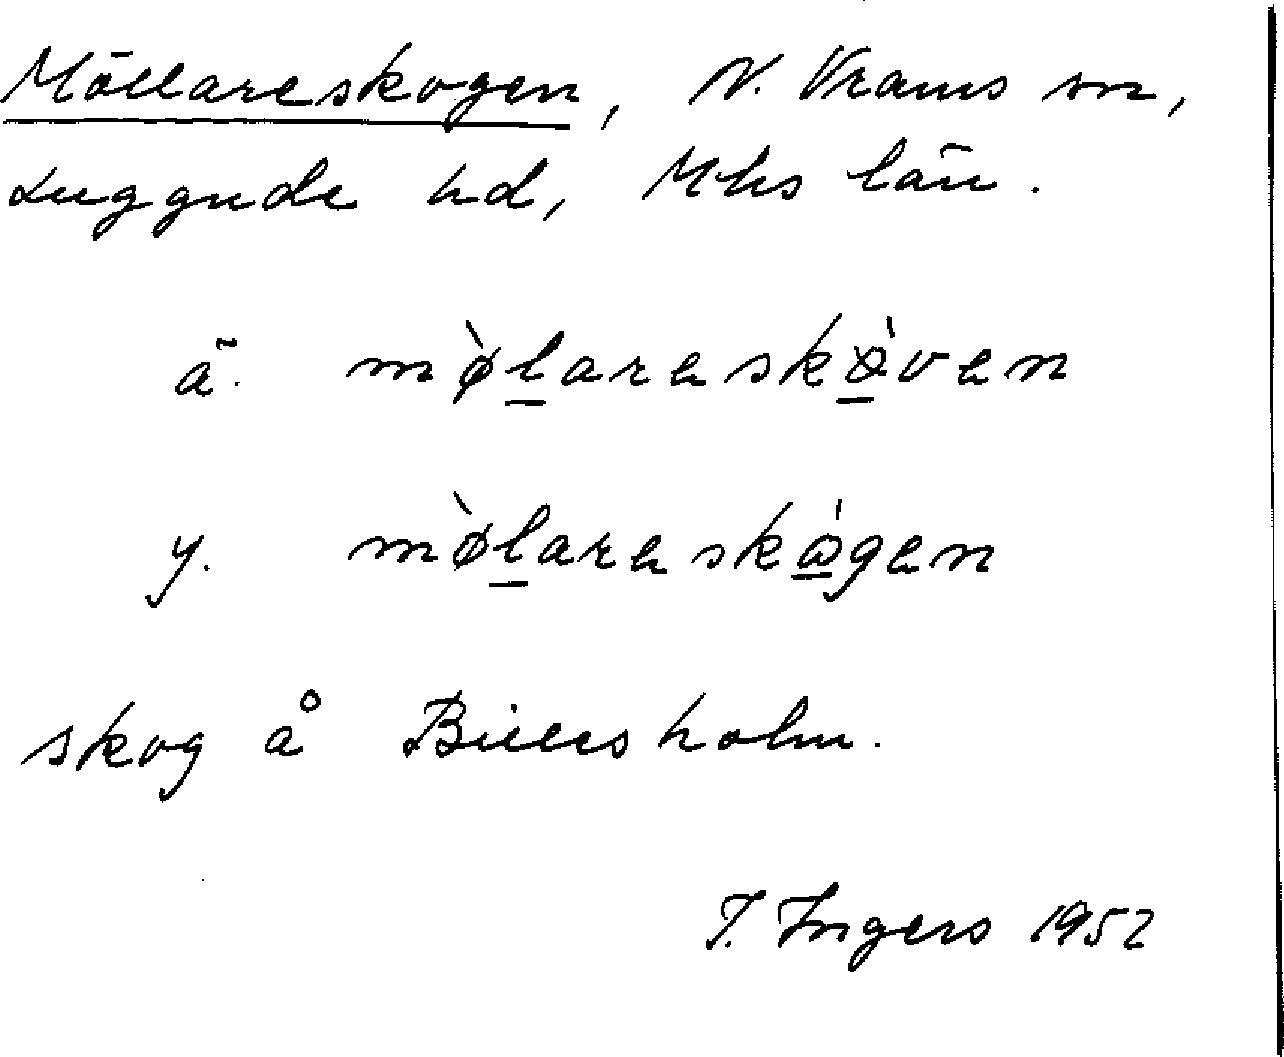 Möllareskogen, N. Vrams sn,
Luggude hd, Mhs län.
ä. mø̀lareskòven
y. mø̀lareskògen
skog å Billesholm.
I. Ingers 1952